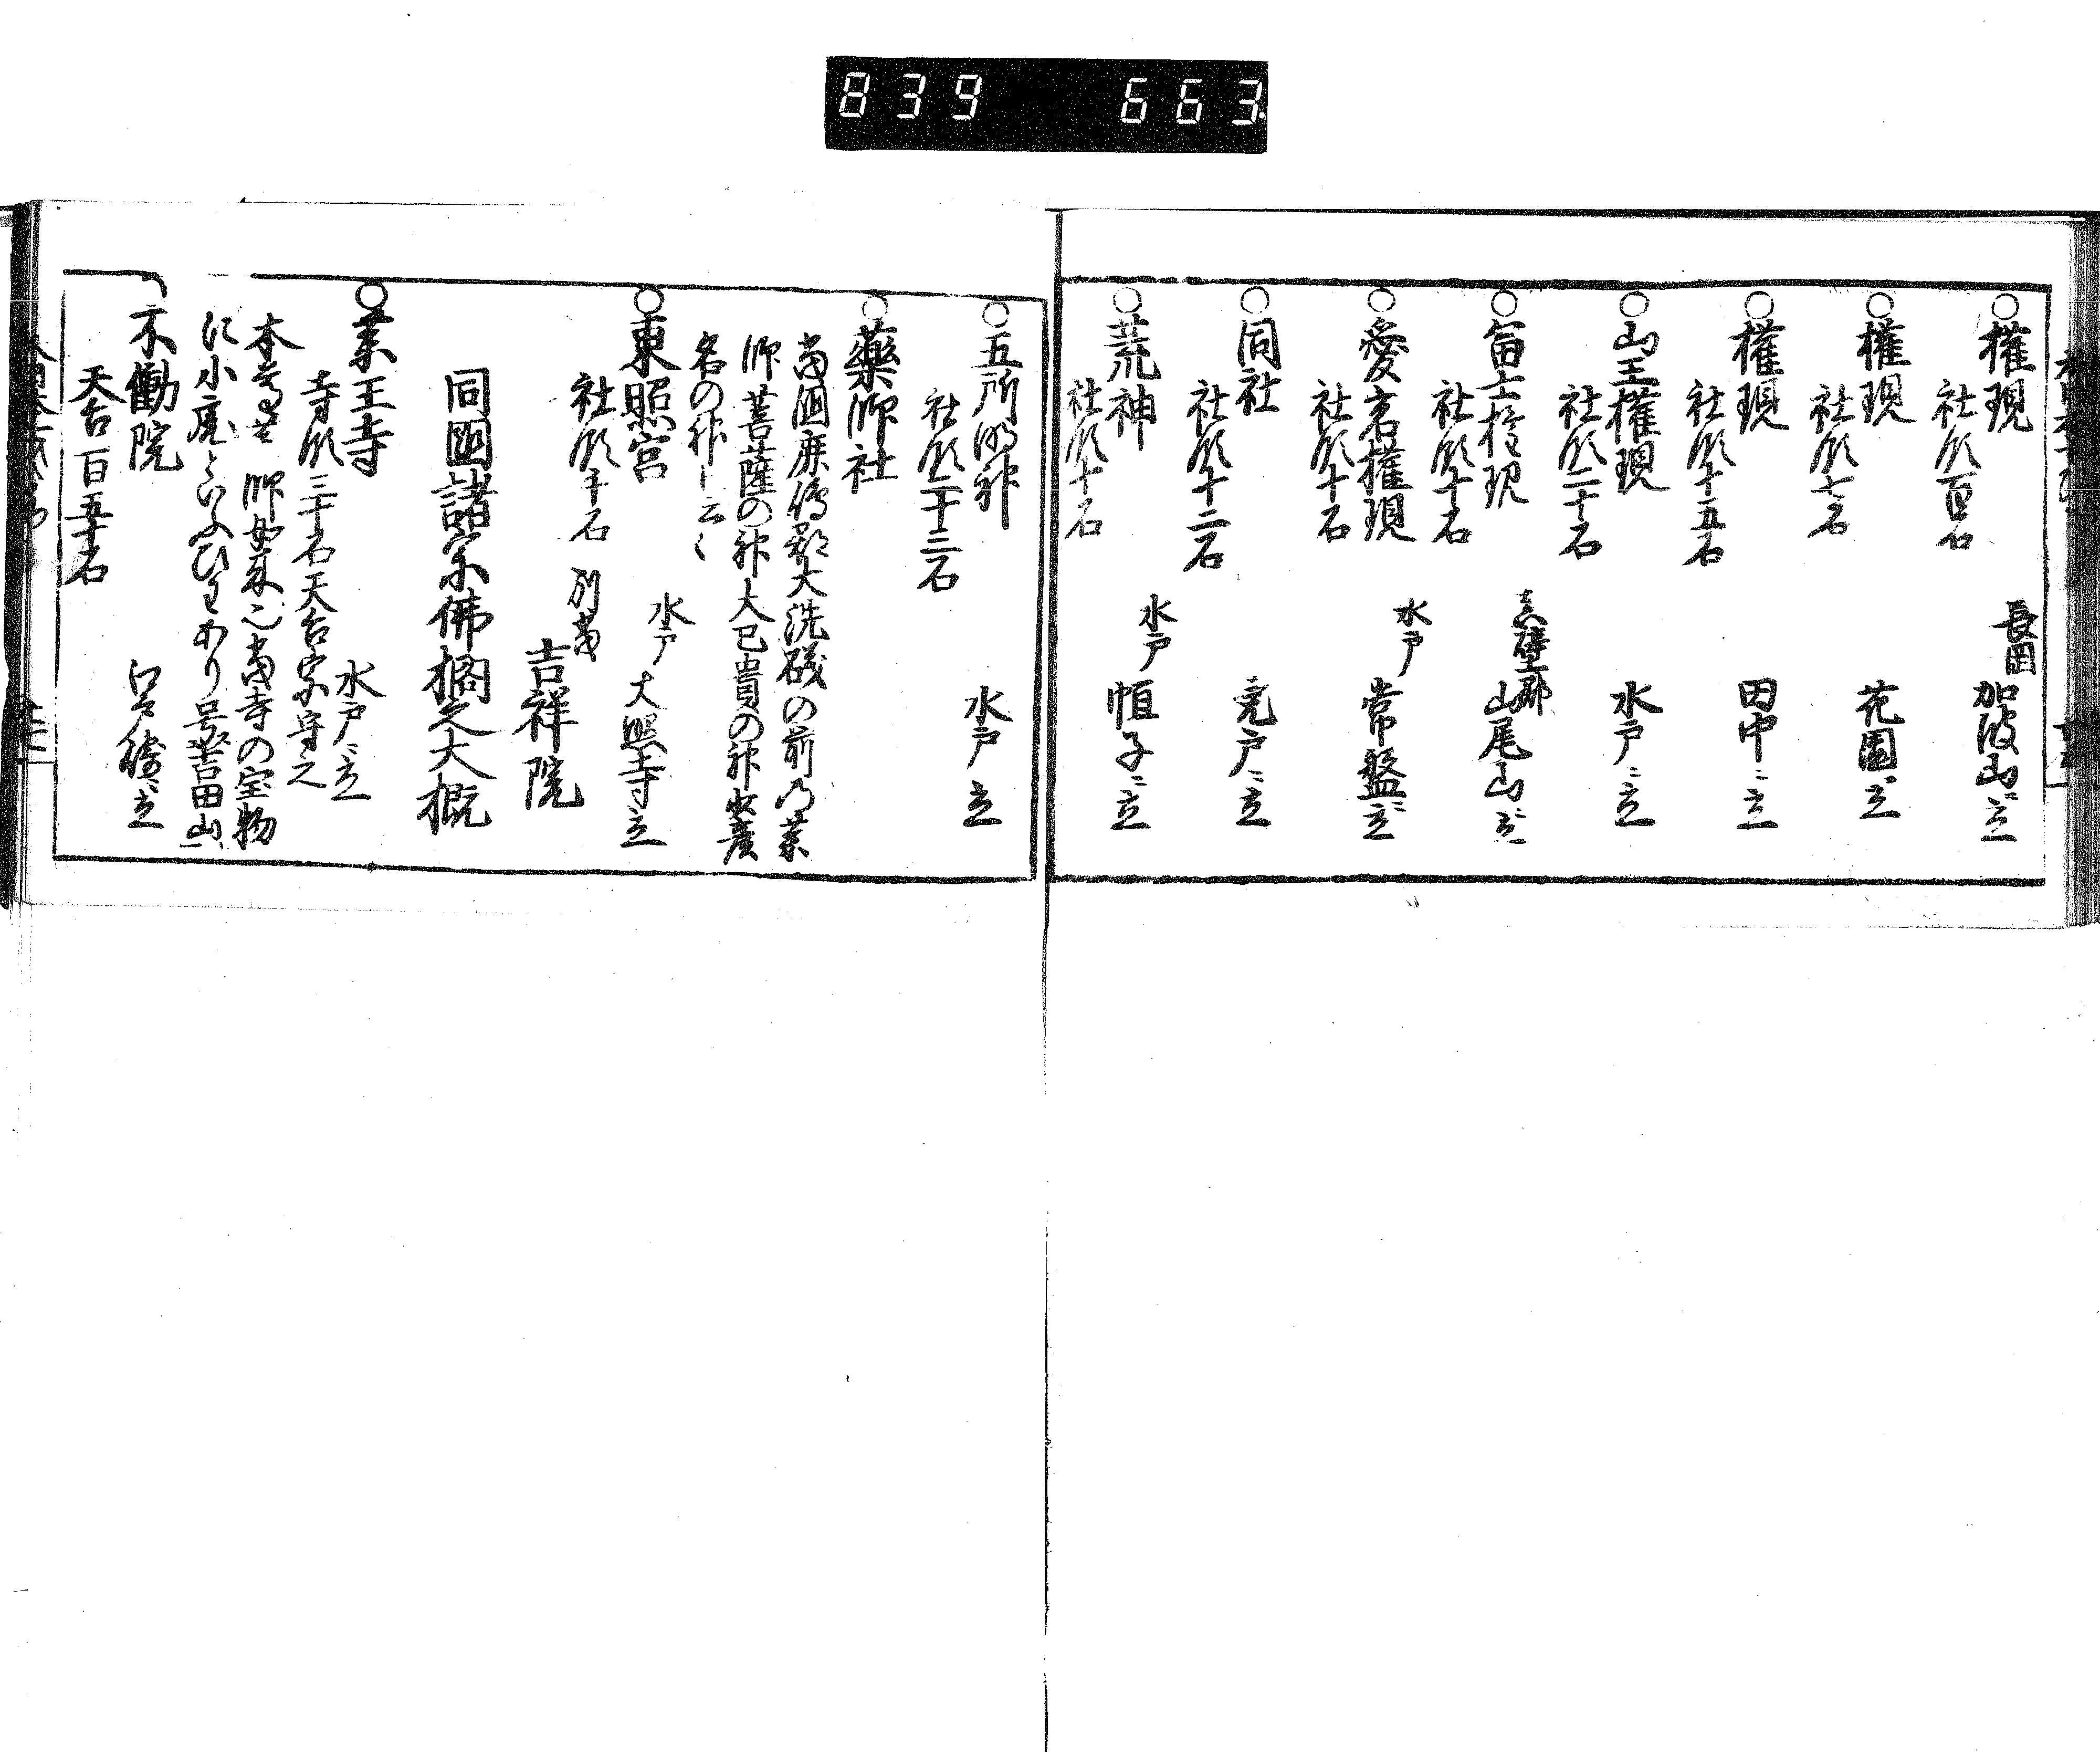 839 663
○権現 長岡 加波山ニ立
社領百石
○権現 花園ニ立
社領七石
○権現 田中ニ立
社領十五石
○山王権現 水戸ニ立
社領二十石
○富士権現 真壁郡 山尾山ニ立
社領十石
○愛宕権現 水戸 常盤ニ立
社領十石
○同社 完戸ニ立
社領十二石
○荒神 水戸 恒子ニ立
社領十石
○五所明神 水戸立
社領二十三石
○藥師社
当国鹿嶋郡大洗磯の前乃薬
師菩薩の神大已貴の神少彦
名の神と云々
○東照宮 水戸 大照寺立
社領千石 別当
吉祥院
同国諸宗佛搁之大概
○薬王寺 水戸ニ立
寺領三十石天台宗守之
本尊 師如来也当寺の宝物
に小 といふひわあり号吉田山
不動院 江戸 ニ立
天台 百五十石